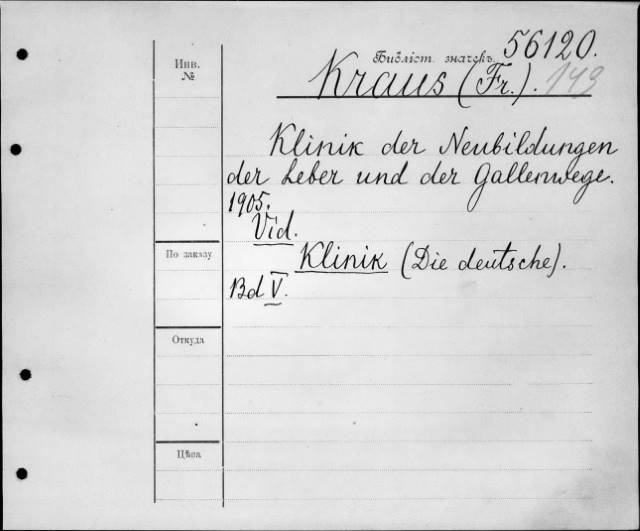 56120.
Инв.
№
Библіот. значекъ
Kraus (Fr.). 143
Klinik der Neubildungen
der Leber und der Gallenwege.
1905.
Vid.
По заказу
Klinik (Die deutsche).
Bd V.
Откуда
Цѣна